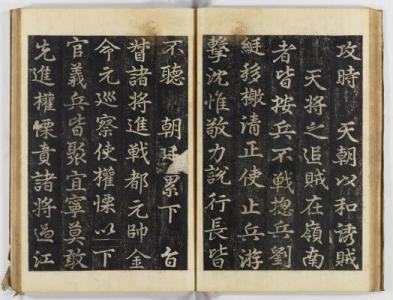 攻時　天朝以和誘賊
　天將之追賊在嶺南
者皆按兵不戰摠兵劉
綎移檄請正使止兵游
擊沈惟敬力說行長皆
不聽　朝廷累下旨
督諸將進戰都元帥金
命元巡察使權慄以下
官義兵皆聚宜寧莫敢
先進權慄責諸將過江